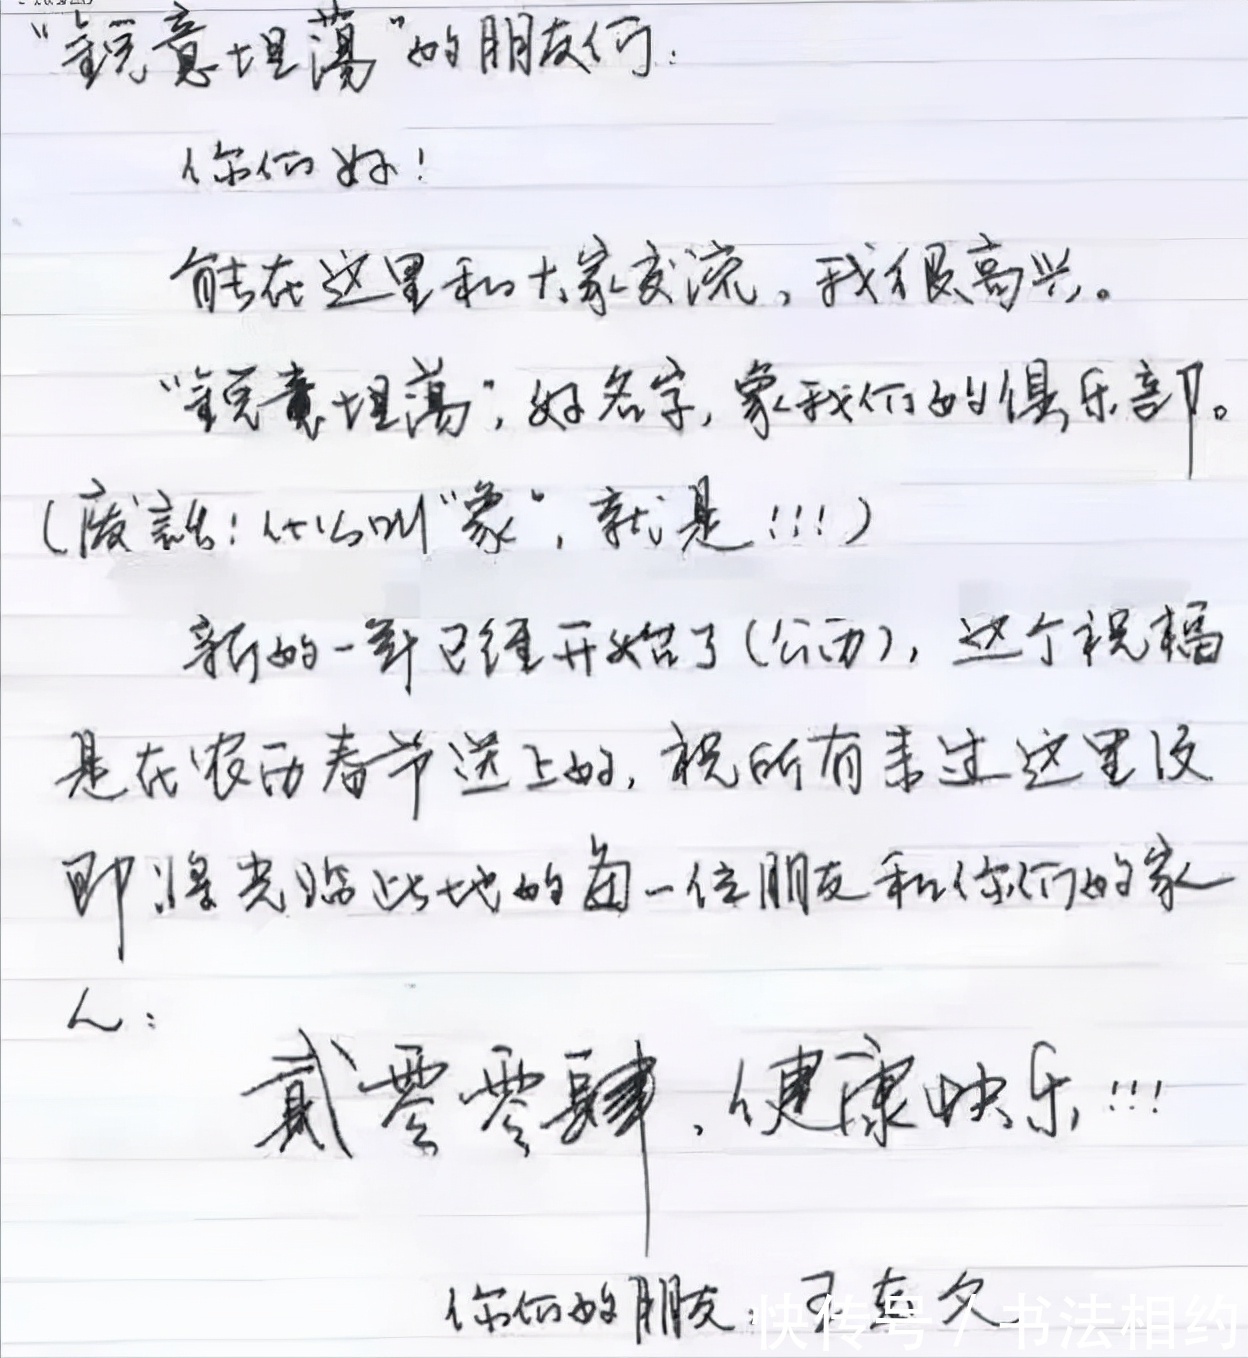 “锐意坦荡”的朋友们：
你们好！
能在这里和大家交流，我很高兴。
“锐意坦荡”，好名字，象我们的俱乐部。
（废話！什么叫“象”，就是！！！）
新的一年已经开始了（公历），这个祝福
是在农历春节送上的，祝所有来过这里及
即将光临此地的每一位朋友和你们的家
人：
贰零零肆，健康快乐！！！
你们的朋友：王
快传号 / 书法相约